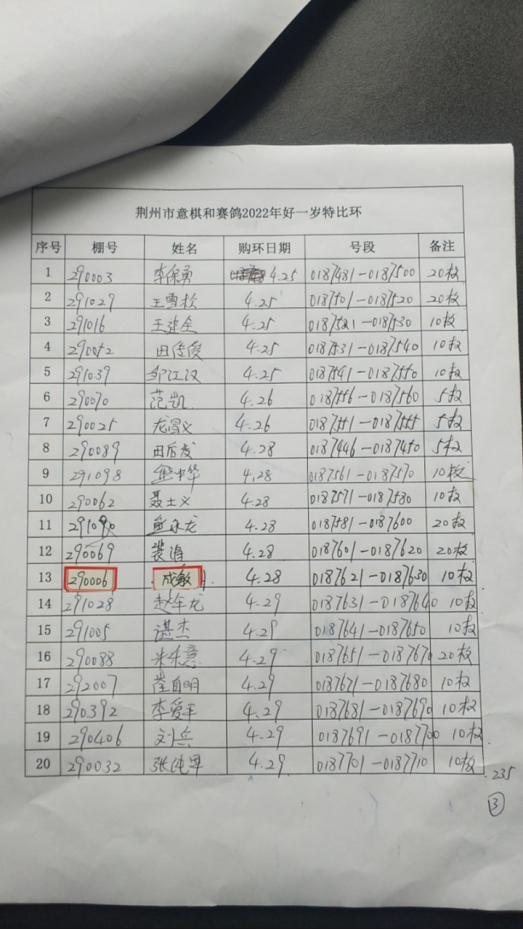 荆州市意棋和赛鸽2022年好一岁特比环
序号 棚号 姓名 购环日期 号段 备注
1 290003 李保勇 4.25 0187481-0187500 20枚
2 291029 王雪松 4.25 0187501-0187520 20枚
3 291016 4.25 0187521-0187530 10枚
4 290052 田传俊 4.25 0187531-0187540 10枚
5 291039 邹江汉 4.25 0187541-0187550 10枚
6 290070 范凯 4.26 0187556-0187560 5枚
7 290025 龙昌义 4.26 0187551-0187555 5枚
8 290089 田后发 4.28 0187446-0187450 5枚
9 291098 4.28 0187561-0187570 10枚
10 290062 聂士义 4.28 0187571-0187580 10枚
11 291090 4.28 0187581-0187600 20枚
12 290069 裴海 4.28 0187601-0187620 20枚
13 290006 成敏 4.28 0187621-0187630 10枚
14 291028 赵年龙 4.29 0187631-0187640 10枚
15 291005 谌杰 4.29 0187641-0187650 10枚
16 290088 4.29 0187651-0187670 20枚
17 292007 4.29 0187671-0187680 10枚
18 290392 李爱平 4.29 0187681-0187690 10枚
19 290406 刘兵 4.29 0187691-0187700 10枚
20 290032 张纯军 4.29 0187701-0187710 10枚
235
③